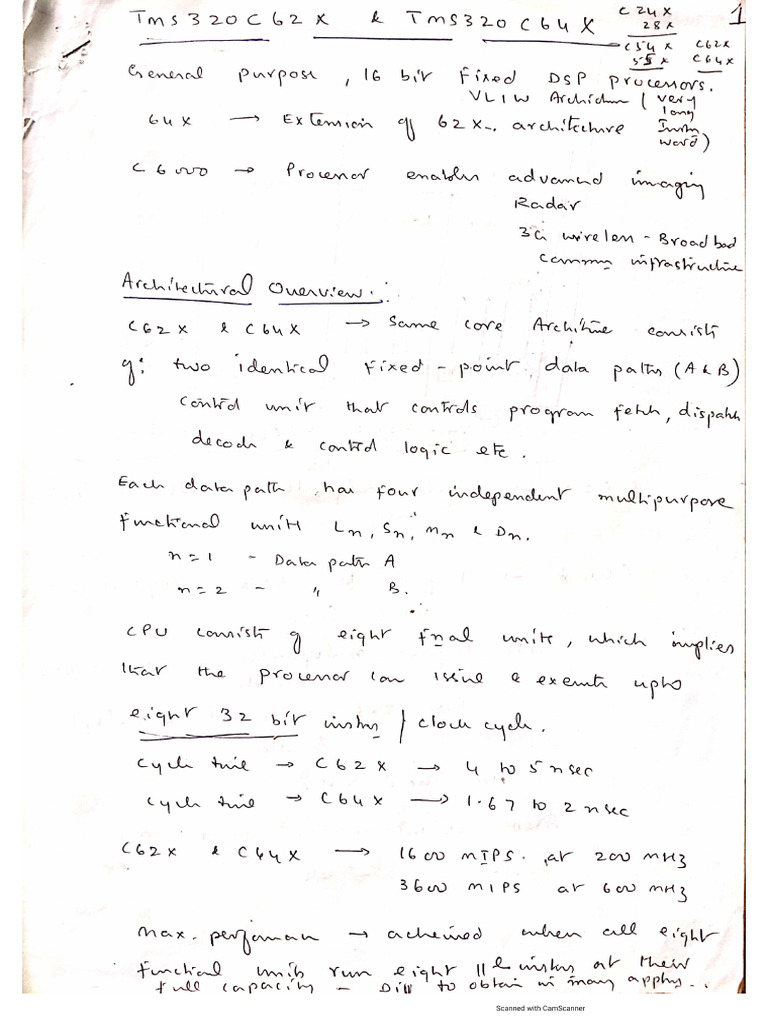 TMS320C62X & TMS320C64X
C24X
28X
C54X
55X
C62X
C64X
1
General purpose, 16 bit fixed DSP processors.
VLIW Architecture (very
long
Instn
word)
64X → Extension of 62X. architecture
C6000 → Processor enables advanced imaging
Radar
3G wireless - Broadbad
Commn infrastructure
Architectural Overview:
C62X & C64X → Same core Architre consists
of: two identical fixed-point data paths (A & B)
Control unit that controls program fetch, dispatch
decode & control logic etc.
Each data path has four independent multipurpose
functional units Ln, Sn, Mn & Dn.
n=1 - Data path A
n=2 - " B.
CPU consists of eight fnal units, which implies
that the processor can issue & execute upto
eight 32 bit instns / clock cycle.
Cycle time → C62X → 4 to 5 nsec
Cycle time → C64X → 1.67 to 2 nsec
C62X & C64X → 1600 MIPS. at 200 MHz
3600 MIPS at 600 MHz
Max. performan → acheived when all eight
functial units run eight ||l instns at their
full capacity - Diff to obtain in many applns..
Scanned with CamScanner